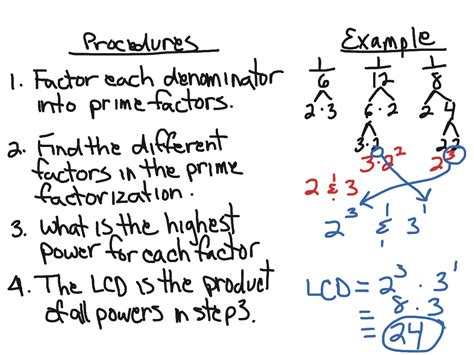 Procedures
1. Factor each denominator
into prime factors.
2. Find the different
factors in the prime
factorization.
3. What is the highest
power for each factor
4. The LCD is the product
of all powers in step 3.
Example
1/6 1/12 1/8
2·3 6·2 2 4
3·2 2 2
3·2² 2³
2 & 3
2³ & 3¹
LCD = 2³ · 3¹
= 8·3
= 24